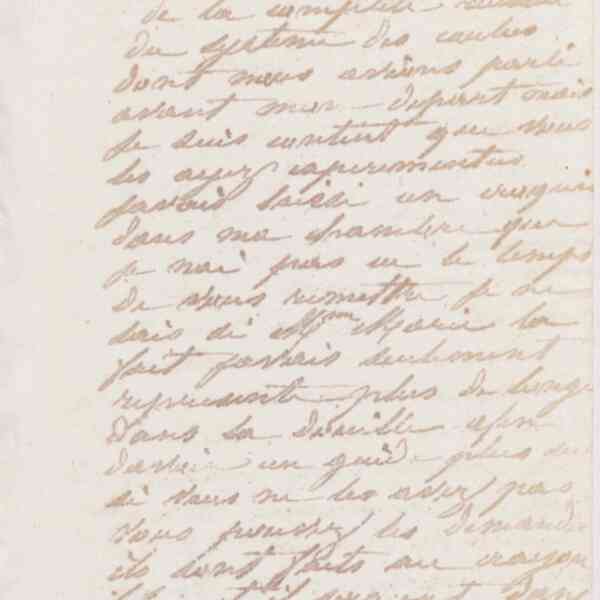 de la complète réussite
du système des cubes
dont nous avions parlé
avant mon depart mais
je suis content que vous
les ayez experimentes
javais laissé un croquis
dans ma chambre que
je nai pas eu le temps
de vous remettre je ne
sais si Mme Marie la
fait javais seulement
représenté plus de longue
dans la douille afin
davoir un guide plus
si vous ne les avez pas
vous pouvez les demander
ils sont faits au crayon
dans